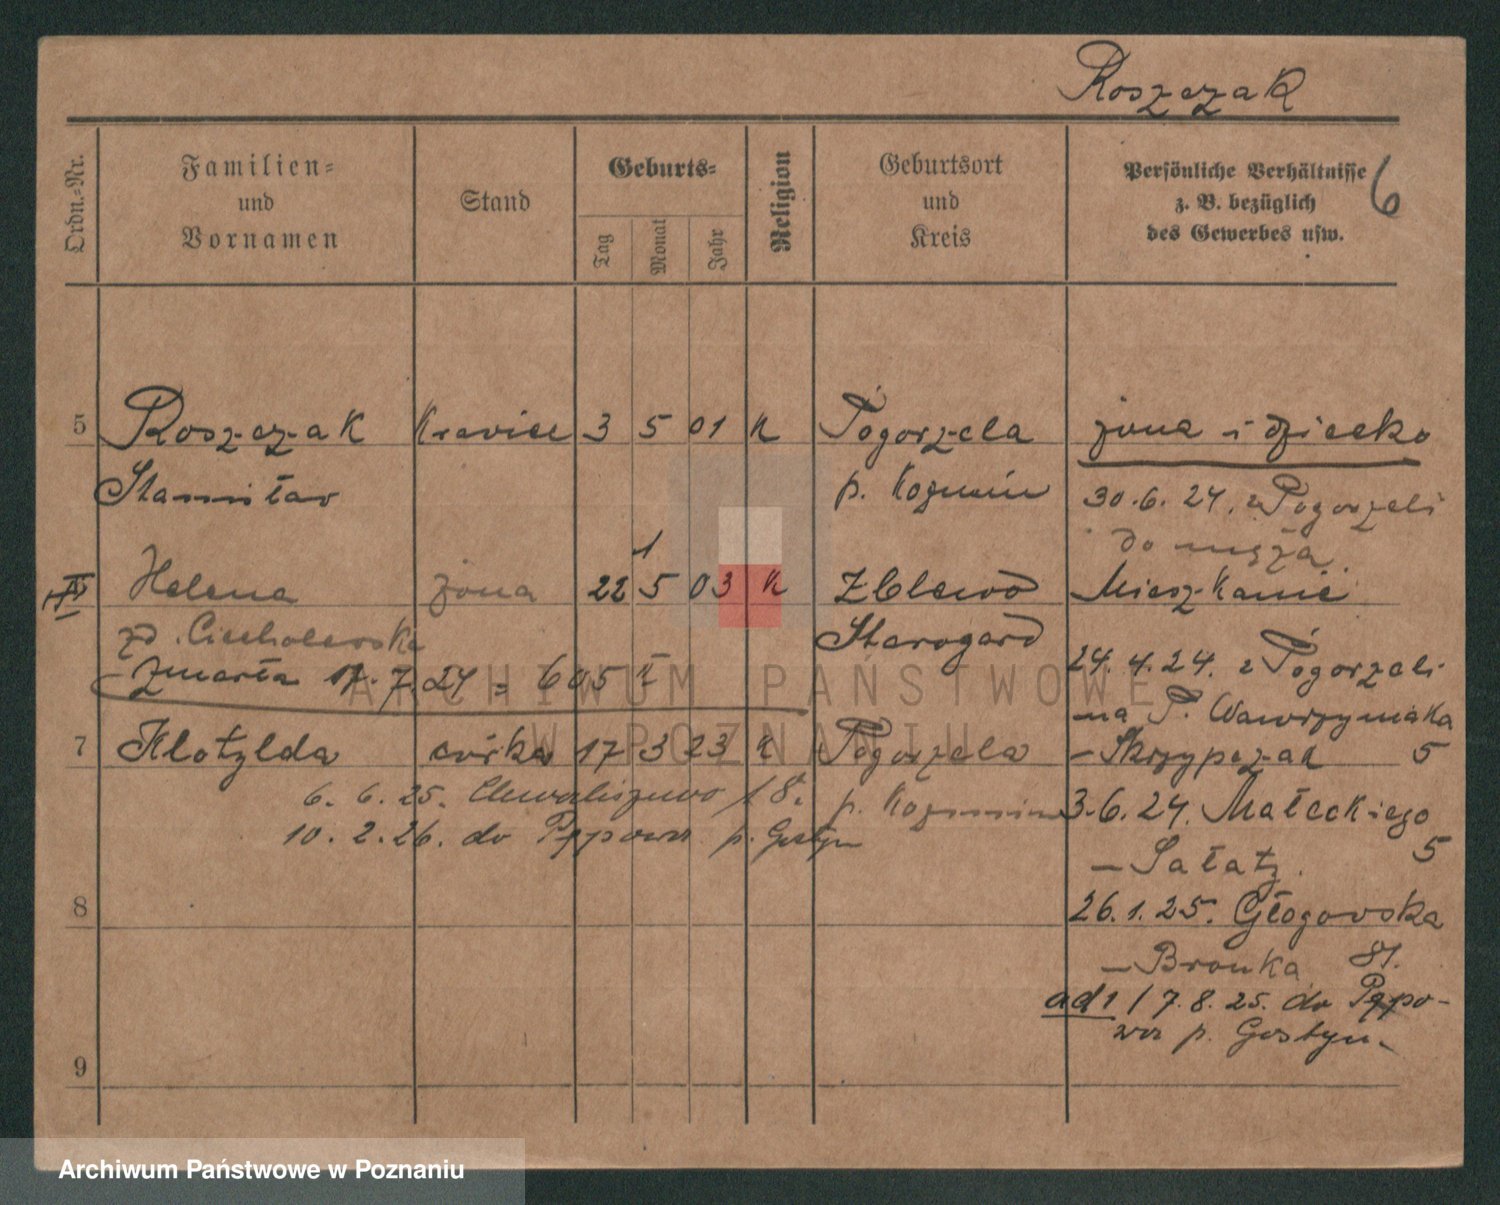 Roszczak
6
Ordn.-Nr.
Familien-
und
Vornamen
Stand
Geburts-
Tag
Monat
Jahr
Religion
Geburtsort
und
Kreis
Persönliche Verhältnisse
z. B. bezüglich
des Gewerbes usw.
5 Roszczak Krawiec 3 5 01 K Pogorzela żona i dziecko
Stanisław p. Kozmin 30.6.24. z Pogorzeli
do męża.
1
Helena żona 22 5 03 K Zblewo Mieszkanie
zd. Ciecholewska Starogard
zmarła 17.7.24 = 605 24.4.24. z Pogorzeli
na P. Wawrzyniaka
7 Klotylda córka 17 3 23 K Pogorzela - Skrzypczak 5
6. 6. 25. Chwaliszewo 18. p. Kozmin 3.6.24. Małeckiego
10. 2. 26. do Pępowa p. Gostyn 5
- Sałatz.
8 26.1.25. Głogowska
- Bronka 81.
ad 1 / 7.8.25. do Pępo-
wa p. Gostyn.
9
ARCHIWUM PAŃSTWOWE
W POZNANIU
Archiwum Państwowe w Poznaniu